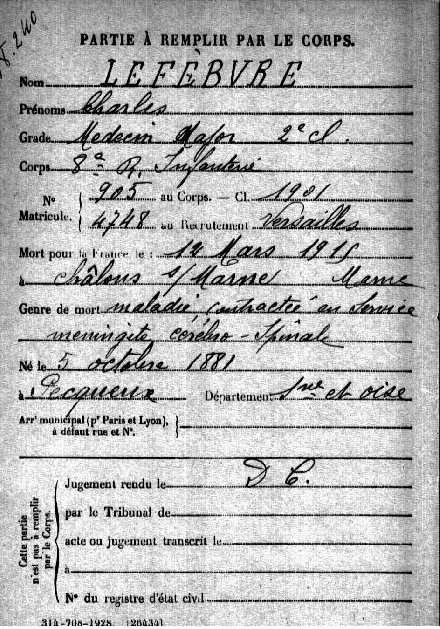 8.240
PARTIE À REMPLIR PAR LE CORPS.
Nom LEFÈBVRE
Prénoms Charles
Grade Medecin Major 2e cl.
Corps 8e R. Infanterie
No 905 au Corps. — Cl. 1901
Matricule. 4748 au Recrutement Versailles
Mort pour la France le : Mars
à Châlons s/Marne Marne
Genre de mort maladie, contractée en Service
meningite cérébro-Spinale
Né le 5 octobre 1881
à Pecqueux Département Sne et oise
Arrt municipal (pr Paris et Lyon),
à défaut rue et No.
Cette partie
n'est pas à remplir
par le Corps.
Jugement rendu le D C.
par le Tribunal de
acte ou jugement transcrit le
à
No du registre d'état civil
314-708-1928. [26434]